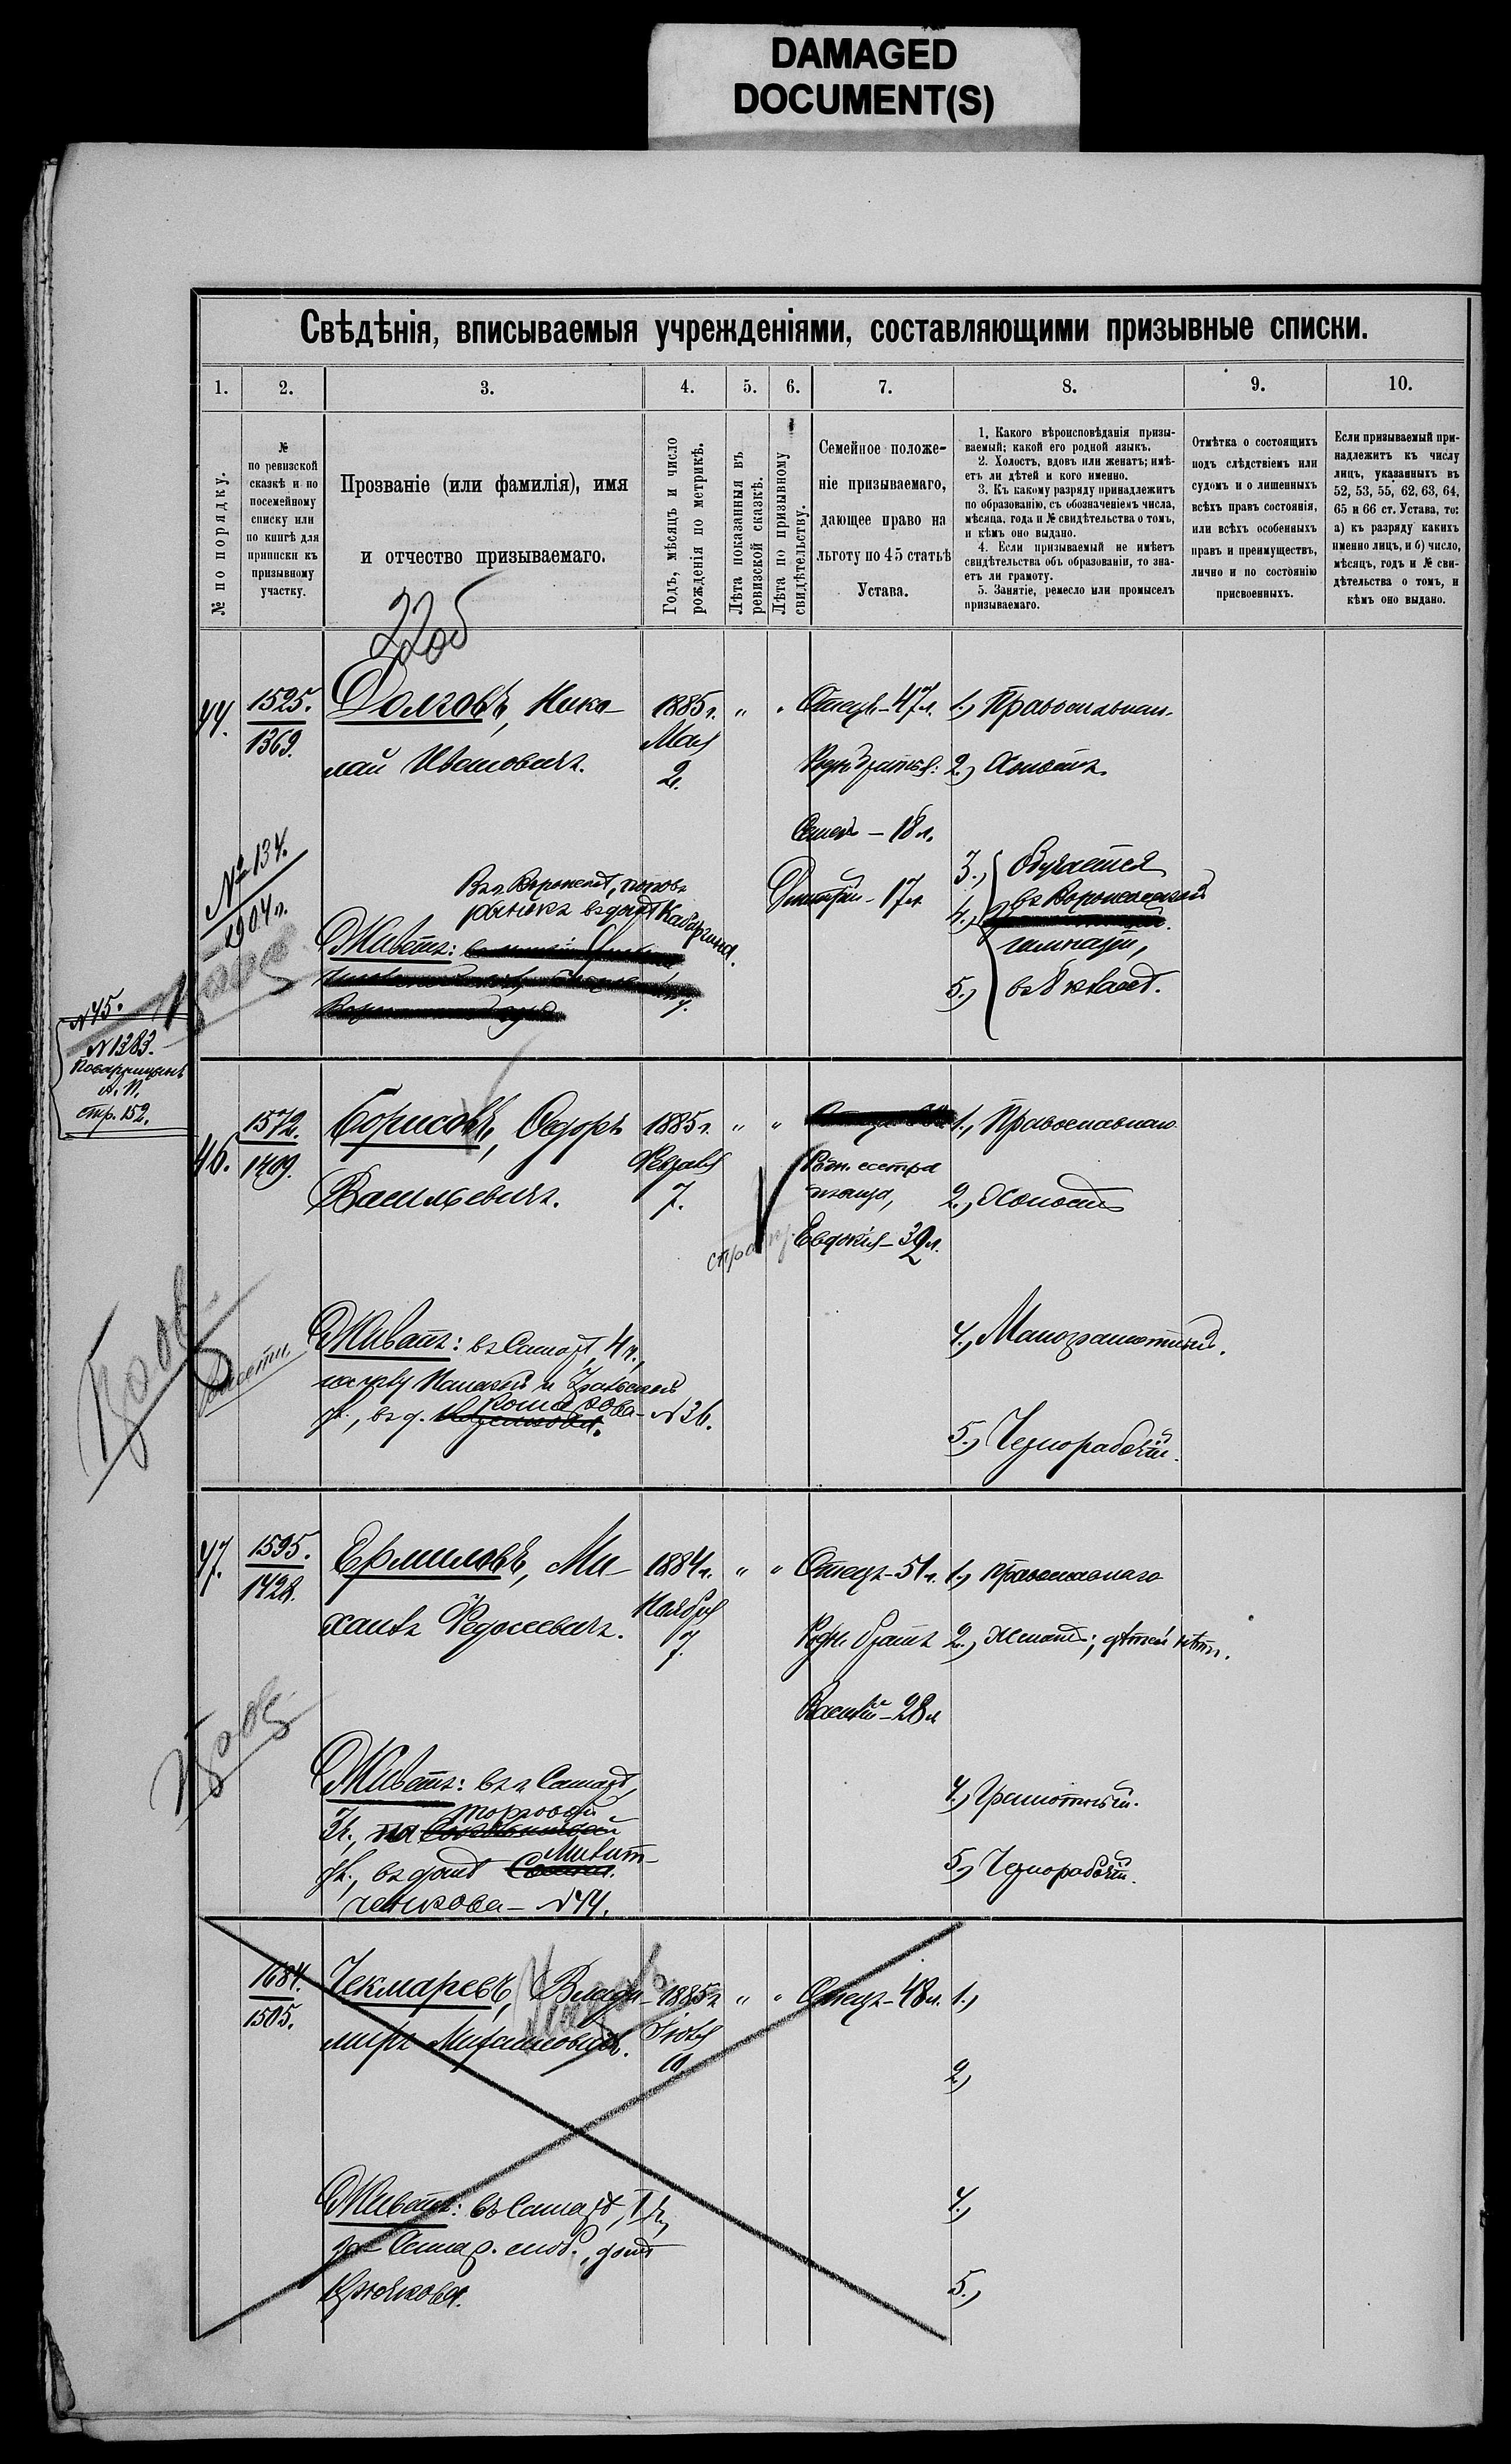 DAMAGED
DOCUMENT(S)
Свѣдѣнія, вписываемыя учрежденіями, составляющими призывные списки.
1. 2. 3. 4. 5. 6. 7. 8. 9. 10.
№ по порядку.
№
по ревизской
сказкѣ и по
посемейному
списку или
по книгѣ для
приписки къ
призывному
участку.
Прозваніе (или фамилія), имя
и отчество призываемаго.
Годъ, мѣсяцъ и число
рожденія по метрикѣ.
Лѣта показанныя въ
ревизской сказкѣ.
Лѣта по призывному
свидѣтельству.
Семейное положе-
ніе призываемаго,
дающее право на
льготу по 45 статьѣ
Устава.
1. Какого вѣроисповѣданія призы-
ваемый; какой его родной языкъ.
2. Холостъ, вдовъ или женатъ; имѣ-
етъ ли дѣтей и кого именно.
3. Къ какому разряду принадлежитъ
по образованію, съ обозначеніемъ числа,
мѣсяца, года и № свидѣтельства о томъ,
и кѣмъ оно выдано.
4. Если призываемый не имѣетъ
свидѣтельства объ образованіи, то зна-
етъ ли грамоту.
5. Занятіе, ремесло или промыселъ
призываемаго.
Отмѣтка о состоящихъ
подъ слѣдствіемъ или
судомъ и о лишенныхъ
всѣхъ правъ состоянія,
или всѣхъ особенныхъ
правъ и преимуществъ,
лично и по состоянію
присвоенныхъ.
Если призываемый при-
надлежитъ къ числу
лицъ, указанныхъ въ
52, 53, 55, 62, 63, 64,
65 и 66 ст. Устава, то:
а) къ разряду какихъ
именно лицъ, и б) число,
мѣсяцъ, годъ и № сви-
дѣтельства о томъ, и
кѣмъ оно выдано.
22об
44. 1525. Долговъ, Нико- 1885 г. " " Отецъ-47 л. 1.) Православнаго
1369. лай Ивановичъ. Мая
2. Родн. братья: 2.) Холостъ
Семенъ - 18 л.
№ 134.
1904 г.
Въ г. Воронежѣ,
въ домѣ Кабаргина.
Дмитрій - 17 л.
Живетъ:
3.) Обучается
4.) въ Воронежской
гимназіи,
5.) въ 8 классѣ.
N 45.
N 1383.
А. П.
стр. 152.
46. 1572. Борисовъ, Ѳедоръ 1885 г. " " 1.) Православнаго
1409. Васильевичъ. Февраля
7. Родн. сестра
Евдокія - 39 л. 2.) Холостъ
Живетъ: въ Самарѣ, 4 ч.,
на углу и Уральской
ул., въ д. N 36.
4.) Малограмотный.
5.) Чернорабочій.
47. 1595. Ермиловъ, Ми- 1884 г. " " Отецъ-51 г. 1.) Православнаго
1428. хаилъ Федосеевичъ. Ноября
7. Родн. братъ 2.) Женатъ; дѣтей нѣтъ.
Василій - 28 л.
Живетъ: въ г. Самарѣ,
3 ч., на Торговой
ул., въ домѣ Микит-
ченкова - N 44.
4.) Грамотный.
5.) Чернорабочій.
1684. Чекмаревъ, Влади- 1885 г. " " Отецъ-48 л. 1.)
1505. миръ Михаиловичъ. Іюля
10. 2.)
Живетъ: въ Самарѣ, 1 ч.,
за р. слоб., домъ
Крючкова.
4.)
5.)